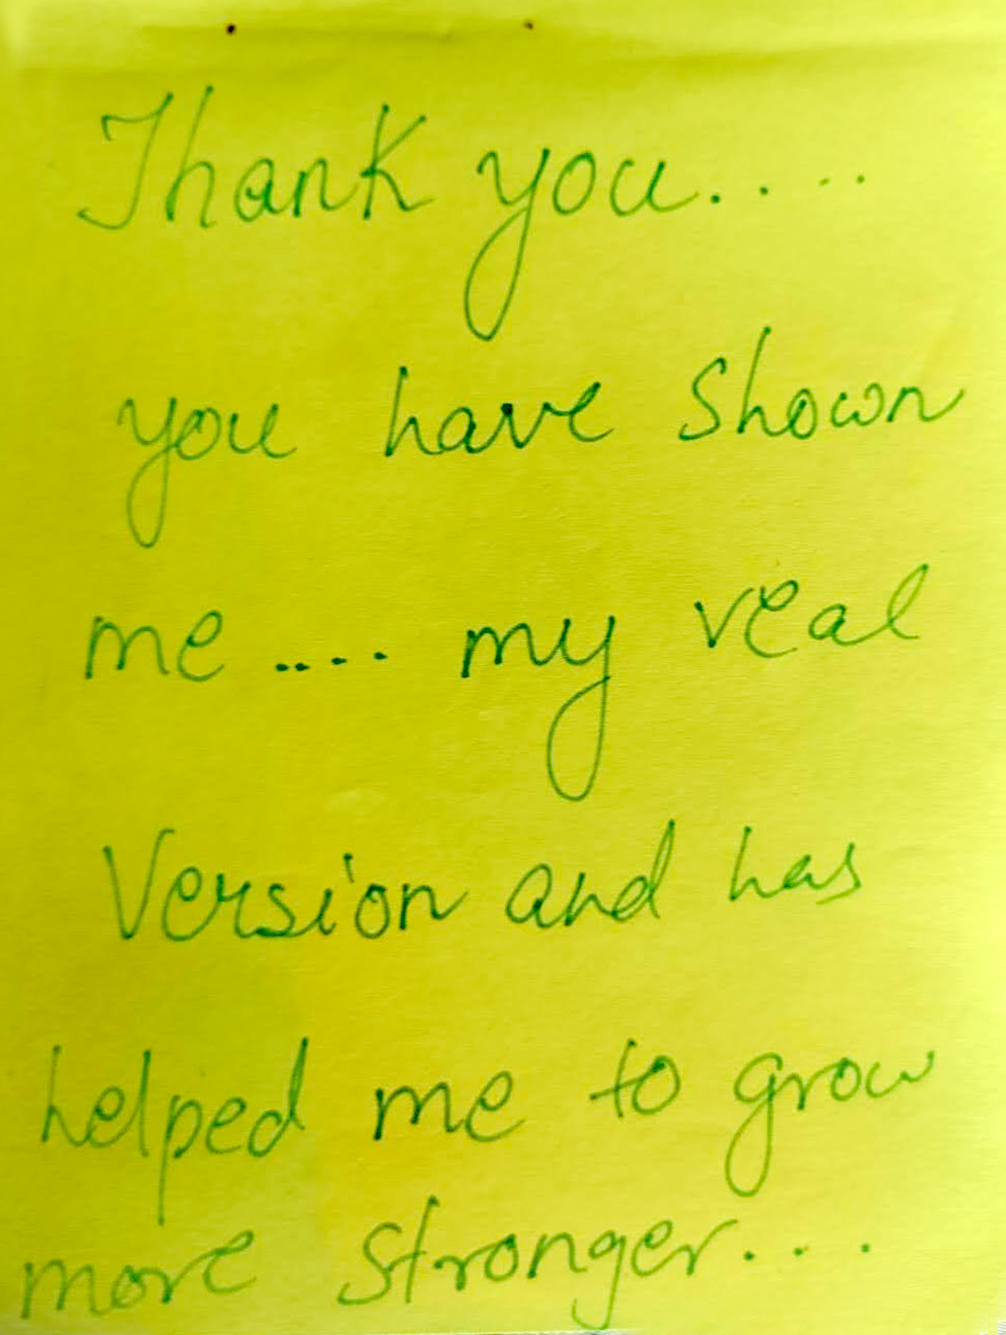 Thank you....
you have shown
me .... my real
Version and has
helped me to grow
more stronger....